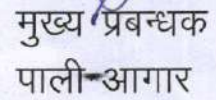 मुख्य प्रबन्धक
पाली-आगार